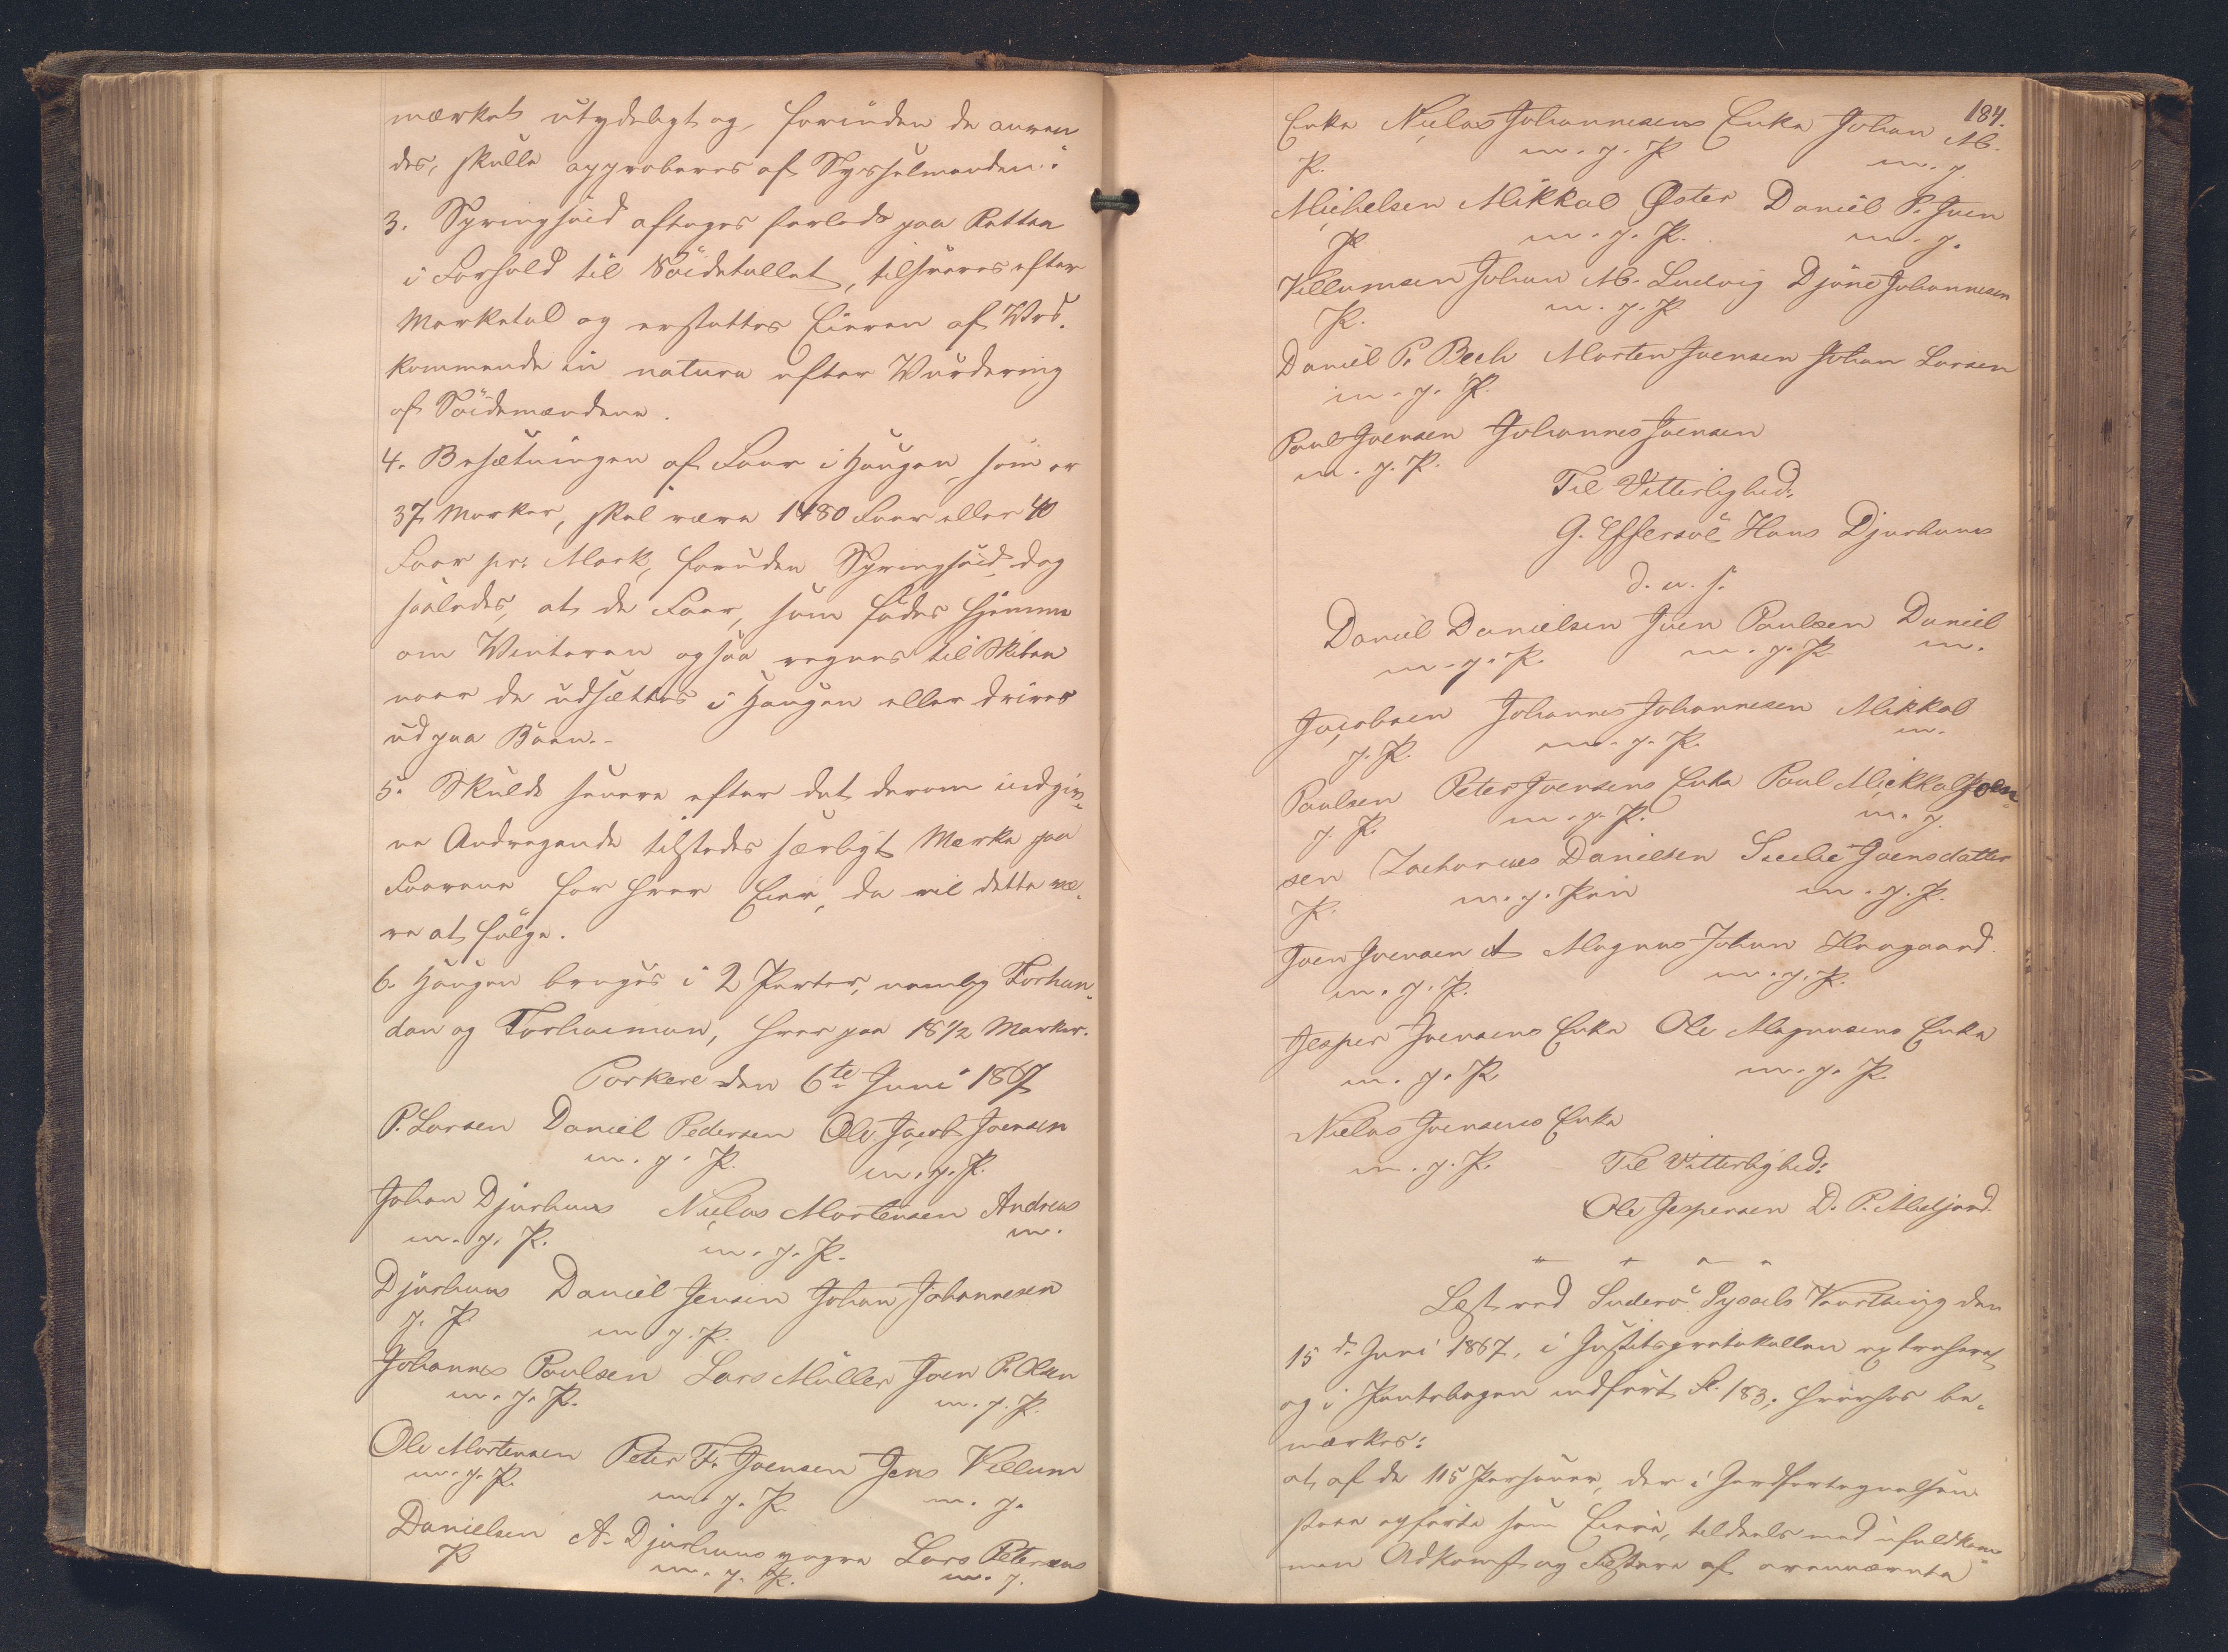 mærket utydeligt og, forinden de anven
des, skulle approberes af Sysselmanden.
3. Springsöid aftages forlods paa Retten
i Forhold til Söidetallet, tilsvares efter
Marketal og erstattes Eieren af Ved-
kommende in natura efter Vurdering
af Söidemændene.
4. Besætningen af Faar i Haugen, som er
37 Marker, skal være 1480 Faar eller 40
Faar pr: Mark, foruden Springsöid, dog
saaledes, at de Faar, som födes hjemme
om Vinteren ogsaa regnes til Skiben
naar de udsættes i Haugen eller drives
ud paa Böen.-
5. Skulde senere efter det derom indgiv-
ne Andragende tilstedes særligt Mærke paa
Faarene for hver Eier, da vil dette væ-
re at fölge.
6. Haugen bruges i 2 Parter, nemlig Forhan-
dan og Forheiman, hver paa 18 1/2 Marker.
Porkere den 6te Juni 1867
P. Larsen Daniel Pedersen Ole Jacob Joensen
m. p. P. m. p. P.
Johan Djurhuus Niclas Mortensen Andreas
m. p. P. m. p. P. m.
Djurhuus Daniel Jensen Johan Johannesen
p. P. m. p. P.
Johannes Poulsen Lars Müller Joen P. Olsen
m. p. P. m. p. P.
Ole Mortensen Peter F. Joensen Jens Villum
m. p. P. m. p. P. m. p.
Danielsen A. Djurhuus yngre Lars Petersens
P m. p. P. m. p.
184.
Enke Niclas Johannesens Enke Johan M.
P. m. p. P m. p.
Michelsen Mikkal Øster Daniel P. Joen
P m. p. P. m. p.
Villumsen Johan M. Ludvig Djóne Johannesen
P. m. p. P
Daniel P. Bech Morten Joensen Johan Larsen
m. p. P.
Poul Joensen Johannes Joensen
m. p. P.
Til Vitterlighed:
G. Effersöe Hans Djurhuus
d. u. s.
Daniel Danielsen Joen Poulsen Daniel
m. p. P. m. p. P m.
Jacobsen Johannes Johannesen Mikkal
p. P. m. p. P. m.
Poulsen Peter Joensens Enke Poul Mickkal Joen-
p. P. m. p. P. m. p.
sen Zacharias Danielsen Sicilie Joensdatter
P. m. p. Pen m. p. P.
Joen Joensen A Magnus Johan Haagaard
m. p. P. m. p. P.
Jesper Joensens Enke Ole Magnusens Enke
m. p. P. m. p. P.
Niclas Joensens Enke
m. p. P. Til Vitterlighed:
Ole Jespersen D. P. Midjord.
Læst ved Suderö Syssels Vaarthing den
15 d. Juni 1867, i Justitsprotokollen extraheret
og i Pantebogen indfört F. 183, hvorhos be-
mærkes:
at af de 115 Personer, der i Jordfortegnelsen
staae opförte som Eiere, tildeels med ufuldkom-
men Adkomst og Fæstere af ovennævnte